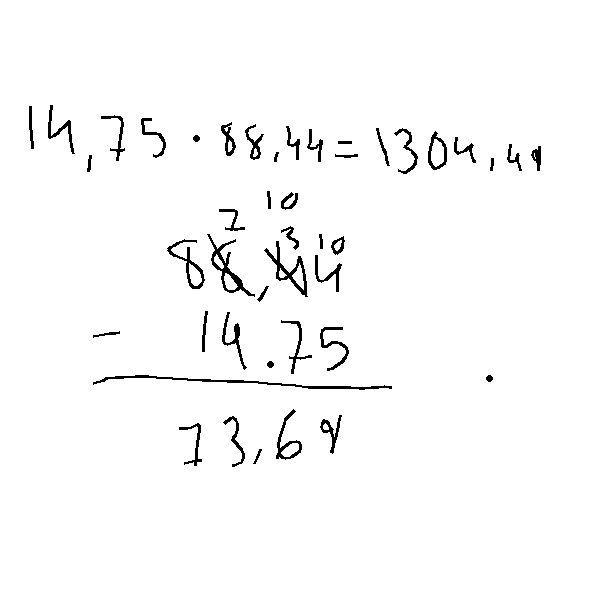 14,75 · 88,44 = 1304,49
10
7 3 10
88,44
- 14.75
73,69